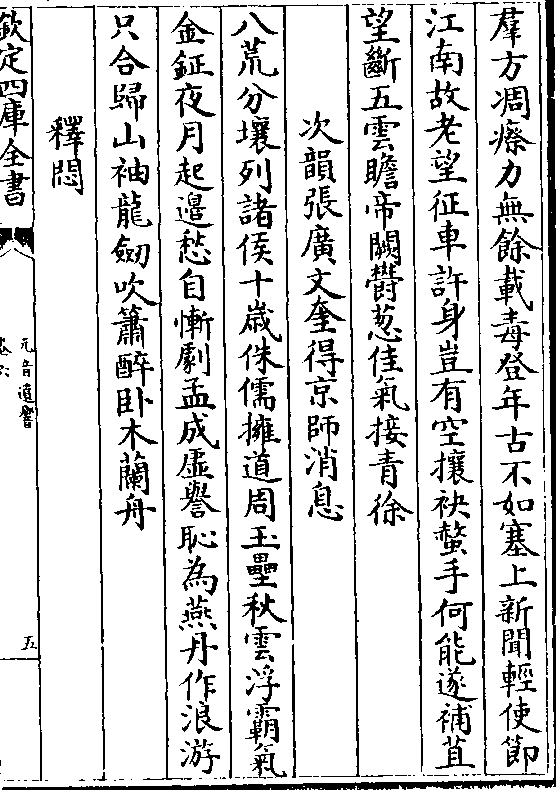 羣方凋瘵力無餘載毒登年古不如塞上新聞輕使節
江南故老望征車許身豈有空攘袂螫手何能遂補苴
望斷五雲瞻帝闕鬱葱佳氣接青徐
次韻張廣文奎得京師消息
八荒分壤列諸侯十歳侏儒擁道周玉壘秋雲浮霸氣
金鉦夜月起邉愁自慚劇孟成虛譽恥為燕丹作浪游
只合歸山袖龍劒吹簫醉卧木蘭舟
釋悶
欽定四庫全書
元音遺響
五